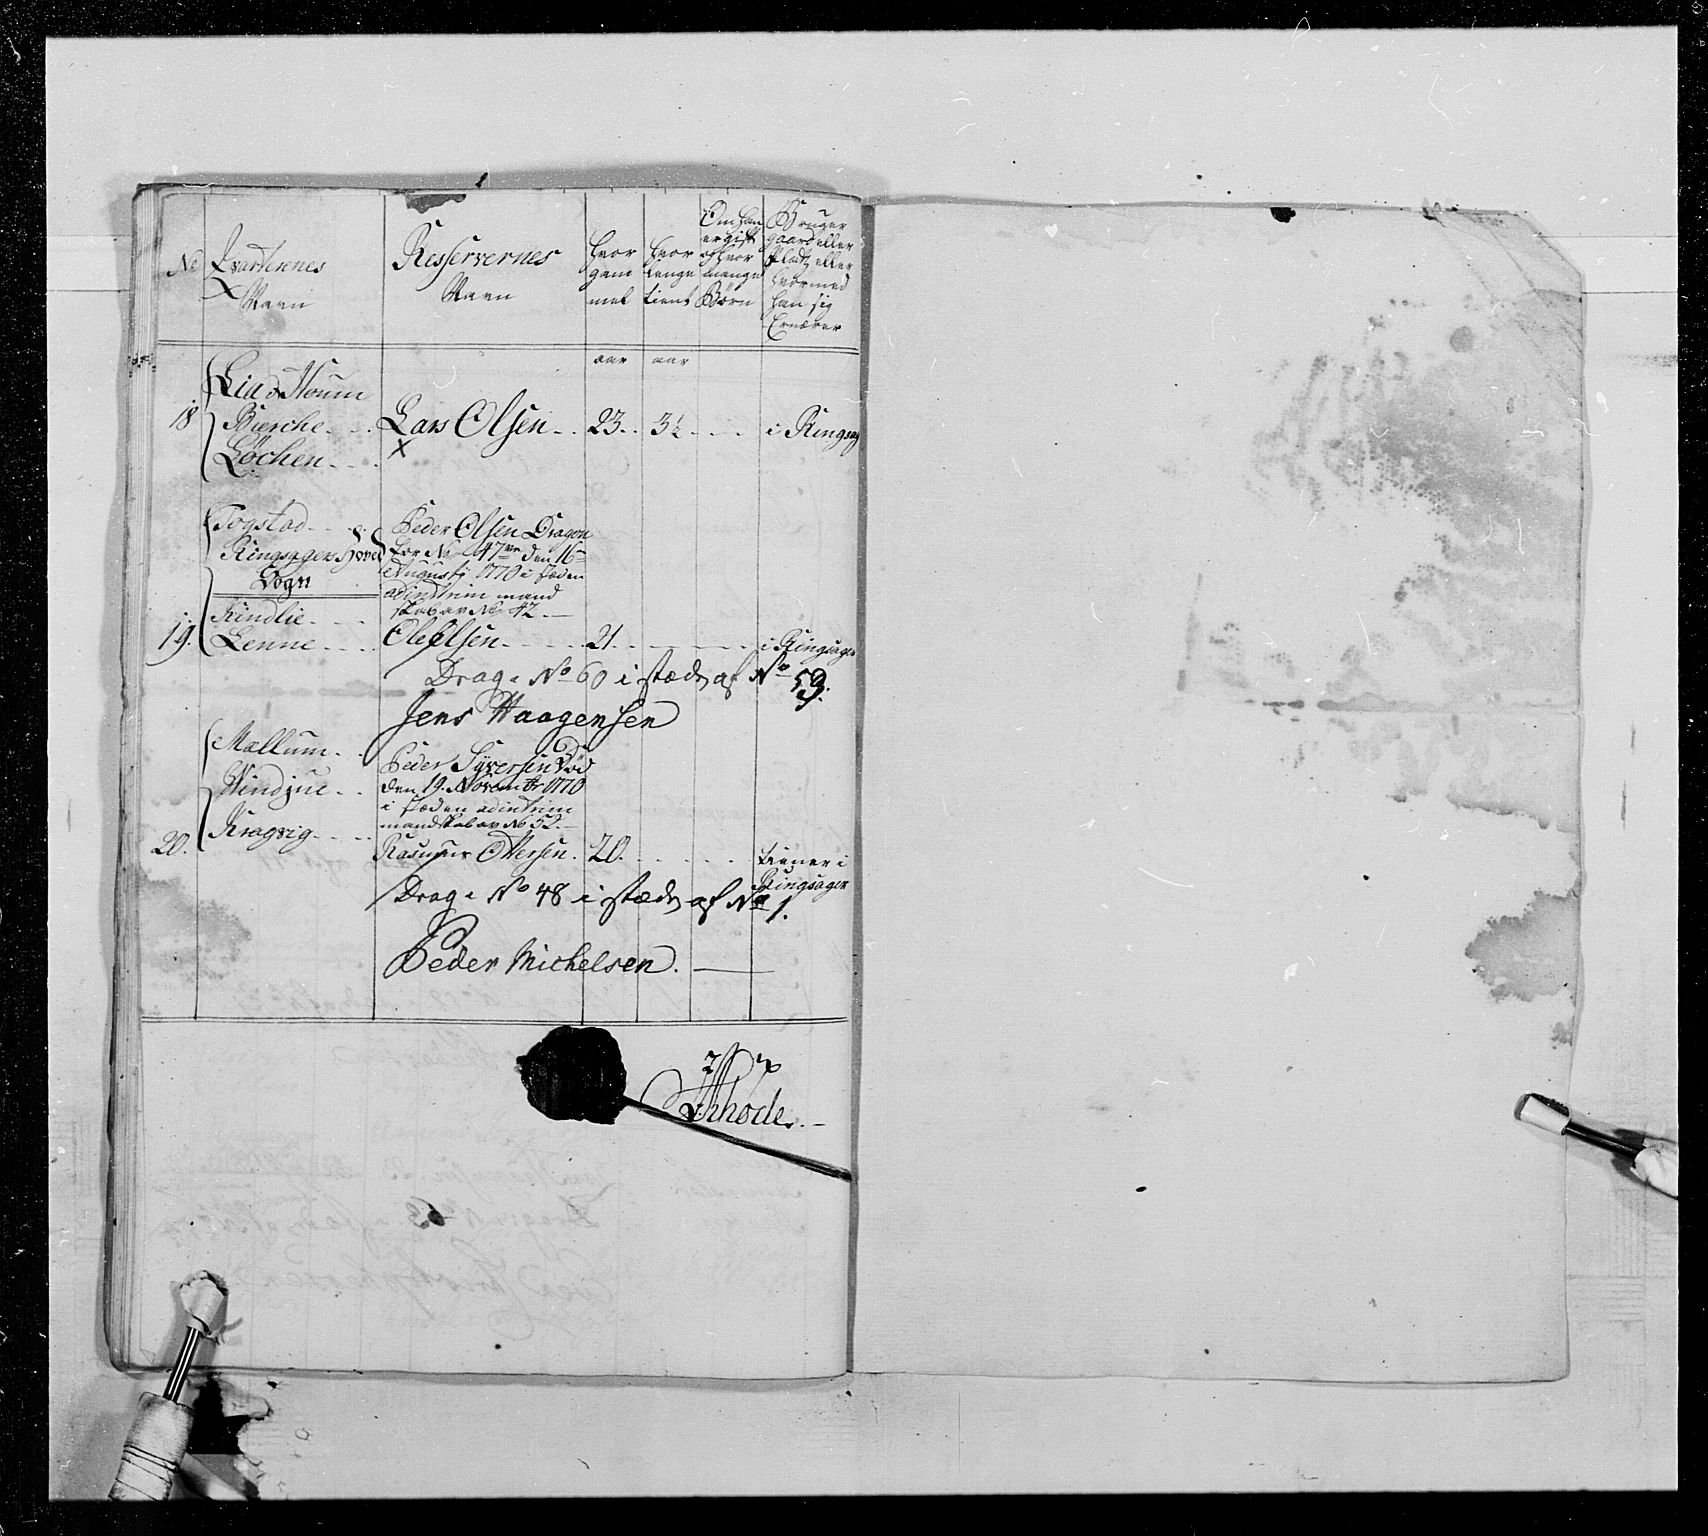 No
Qvarterenes
Navn
Resservernes
Navn
hvor
gam
mel
hvor
lenge
tient
Om han
er gift
og hvor
mange
Børn
Bruger
gaard eller
Pladtz eller
hvormed
han sig
Ernærer
aar aar
18
Lia
Bierche
Løchen
Lars Olsen 23 3½ i Ringsag
X
Togstad
Ringsager
Sogn
Kindlie
Lenne
Peder Olsen Dragon
for No 47 den 16
Augusti 1770 i steden
adindtrim mand
skab av No 42
19. Ole Olsen 21 i Ringsager
Drag. No 60 i stæden af No 59.
Jens Haagensen
Mællum
Windjue
Kragvig
Peder Syversen Død
den 19. Novembr 1770
i stæden adindtrim
mandskab av No 52
20. Rasmus Olersen 20. tiener i
Ringsager
Drag. No 48 i stæden af No 1.
Peder Michelsen.
Rhode.